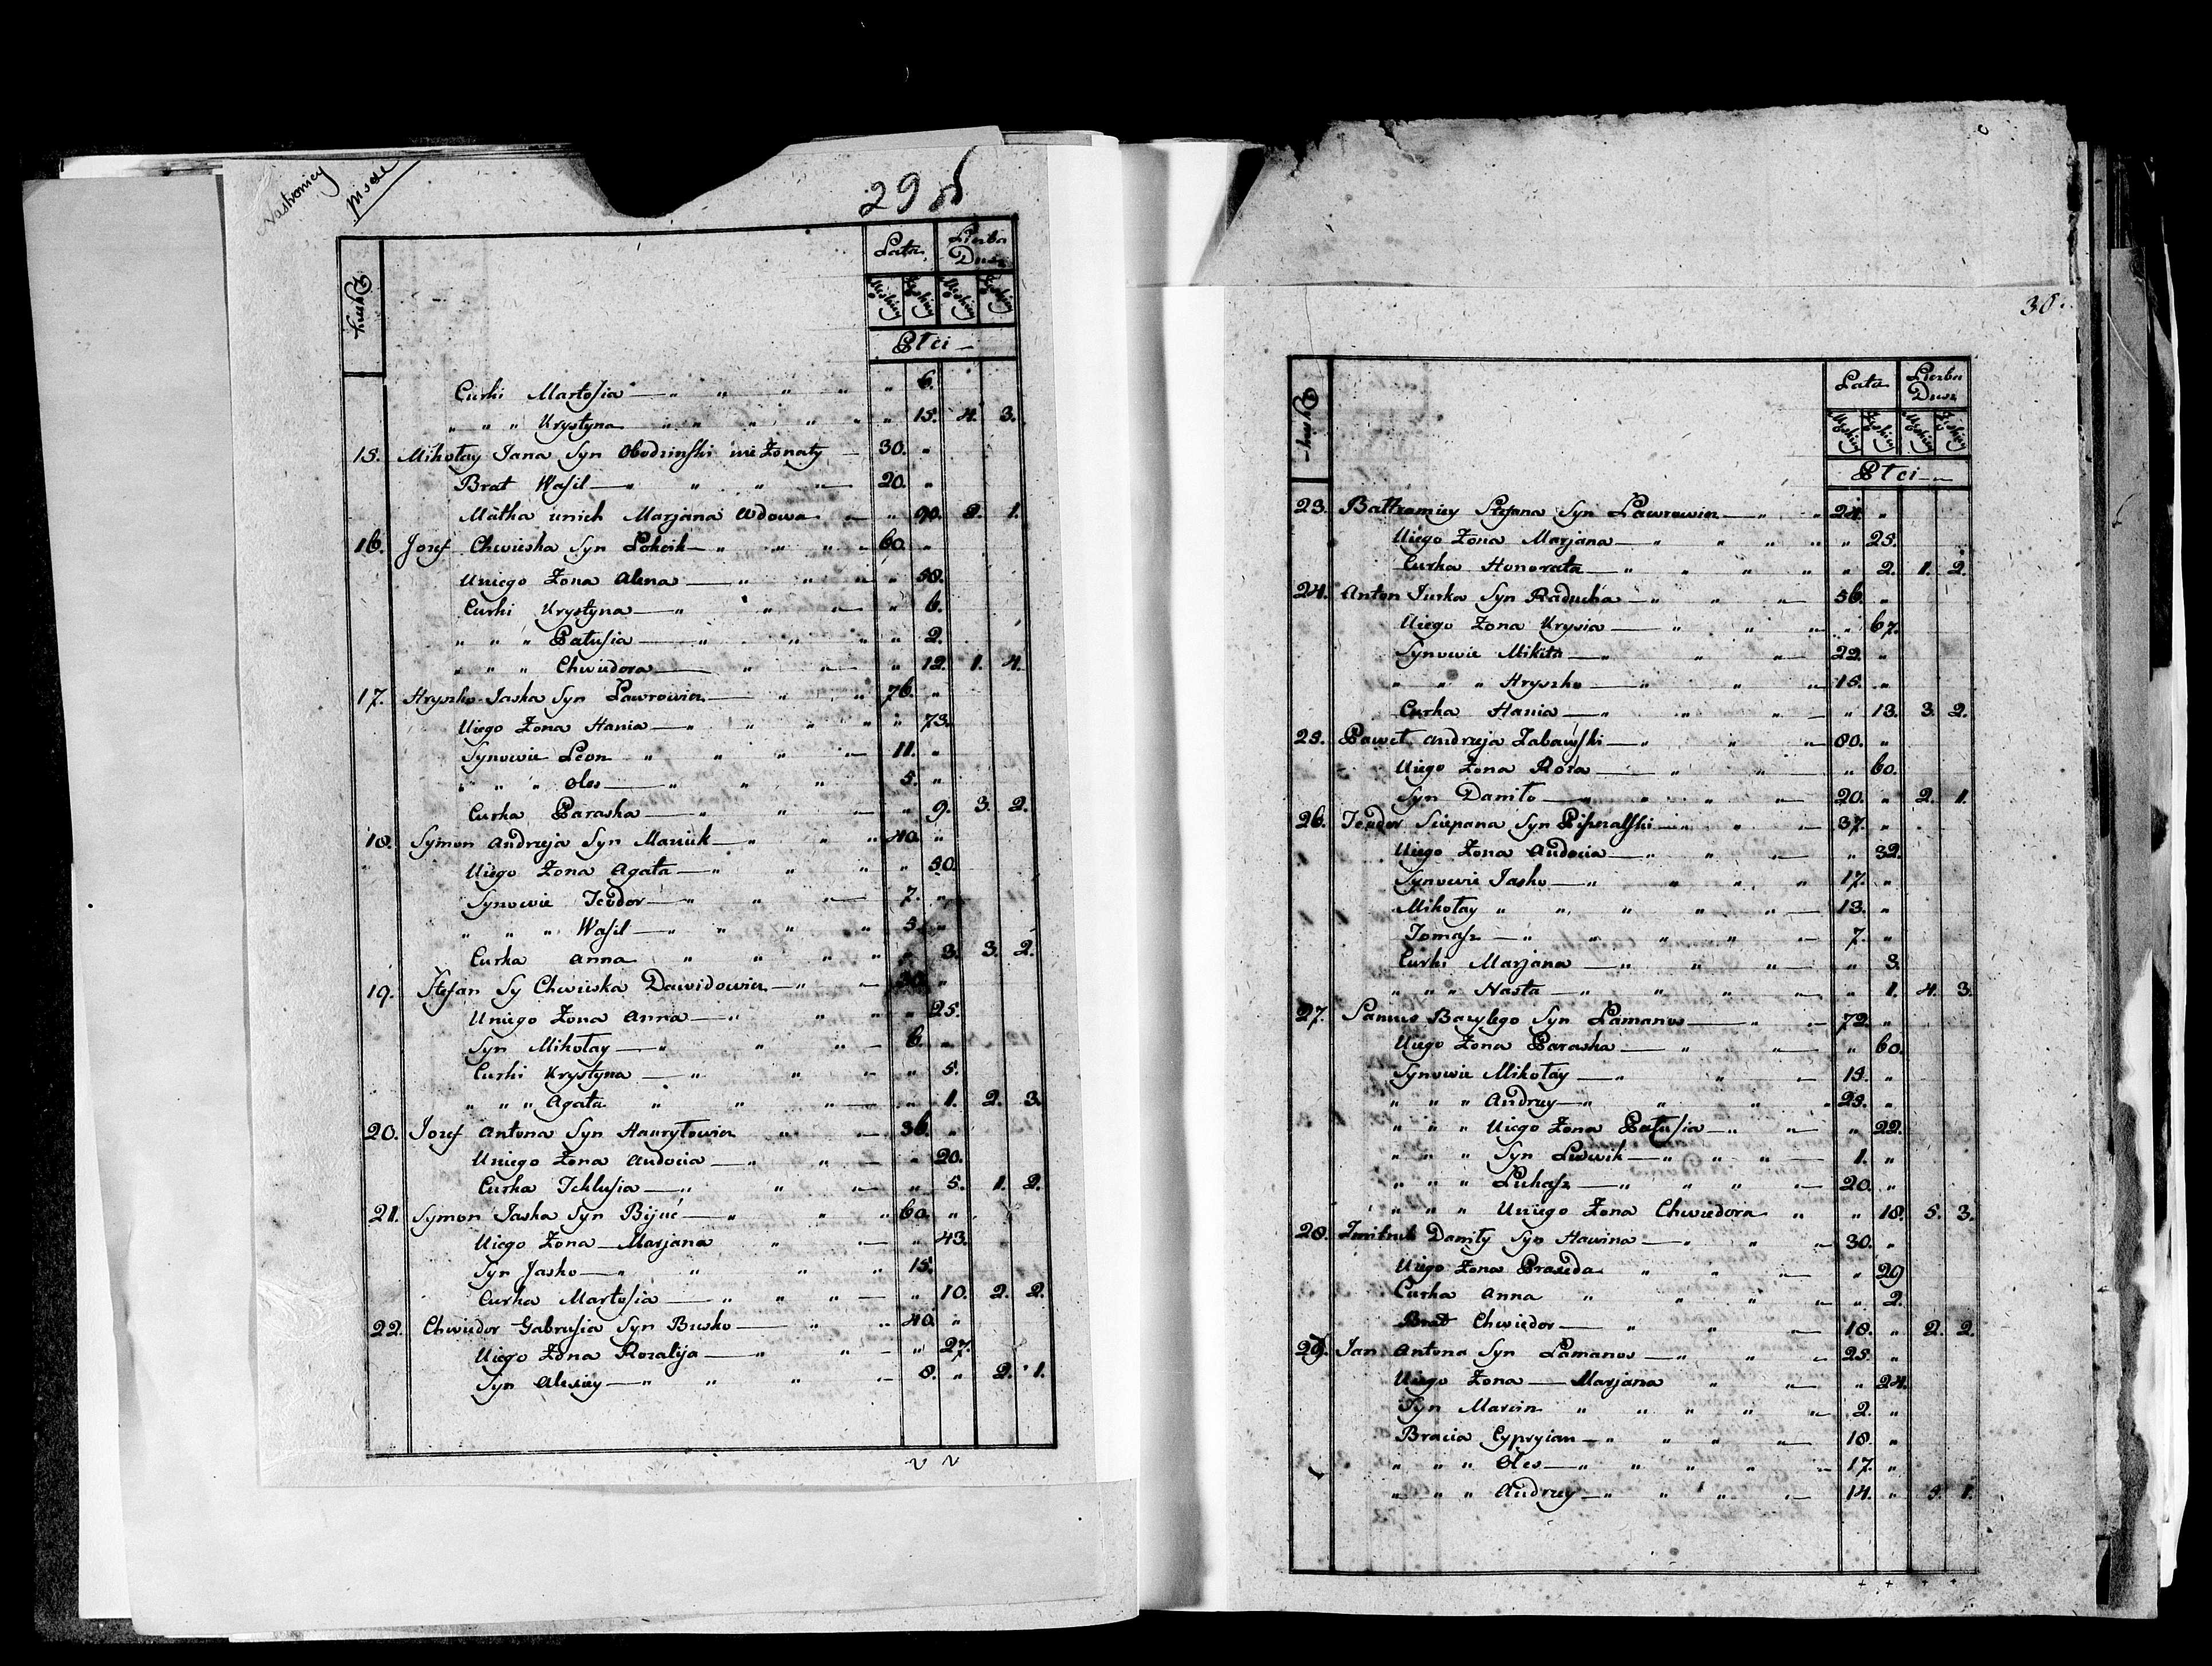 Nastronicy
29
Dymy
Lata
Liczba Dusz
Męskiey
Żeńskiey
Męskiey
Żeńskiey
Płci
Curki Martosia — " " " " " 6.
" " " Krystyna " " " " " " 15. 4. 3.
15. Mikołay Jana Syn Obodzinski nie Żonaty — 30. "
Brat Wasil — " " " " — 20. "
Matka unich Marjana Wdowa — " 90. 2. 1.
16. Jozef Chwieska Syn Łokcik — " " " 60. "
Uniego Żona Alena — " " " " 50.
Curki Krystyna — " " " — " 6.
" " " Patusia — " " " " 2.
" " " Chwiedora — " " — " 12. 1. 4.
17. Hryszko Jaska Syn Ławrowicz — " " 76. "
Uiego Żona Hania — " " " " " 73.
Synowie Leon " " " — 11. "
" " " Oles — " " " 5. "
Curka Paraska — " " — " 9. 3. 2.
18. Symon Andrzeja Syn Maciuk — " " " 40. "
Uiego Żona Agata — " " " " 30.
Synowie Teodor — " " " — 7. "
" " " Wasil — " " " " 5. "
Curka Anna " " " " " 3. 3. 2.
19. Stefan Sy Chwieska Dawidowicz — " — 30. "
Uniego Żona Anna — " " " " 25.
Syn Mikołay — " " " — 6. "
Curki Krystyna — " " — " 5.
" " " Agata " " " — " 1. 2. 3.
20. Jozef Antona Syn Hawryłowicz " — 36. "
Uniego Żona Audocia — " " — " 20.
Curka Teklusia — " " " — " 5. 1. 2.
21. Symon Jaska Syn Bijuć — " " " 60. "
Uiego Żona — Marjana " " — " 43.
Syn Jasko — " " " " 15.
Curka Martosia — " " " — " 10. 2. 2.
22. Chwiedor Gabrusia Syn Busko — " " 40. "
Uiego Żona Rozalija — " " — " 27.
Syn Alexiey — " " " — 8. " 2. 1.
30.
Dymy
Lata
Liczba Dusz
Męskiey
Żeńskiey
Męskiey
Żeńskiey
Płci
23. Bałtromiey Stefana Syn Ławrowicz — " " 24. "
Uiego Żona Marjana — " " " " " 25.
Curka Honorata — " " " " " 2. 1. 2.
24. Anton Jurka Syn Raducha — " " " — 56. "
Uiego Żona Krysia — " " " " 67.
Synowie Mikita — " " " — 22. "
" " " Hryszko — " " " — 15. "
Curka Hania — " " " — " 13. 3. 2.
25. Paweł Andrzeja Zabawski — " " " — 80. "
Uiego Żona Roza — " " — " 60.
Syn Daniło — " " " " — 20. " 2. 1.
26. Teodor Sciepana Syn Piszczalski — " " — 37. "
Uiego Żona Audocia — " " " — " 32.
Synowie Jasko — " " " " 17. "
Mikołay " " " " " — 13. "
Tomasz — " " " " " — 7. "
Curki Marjana — " " " — " 3.
" " " Nasta — " " " — " 1. 4. 3.
27. Samus Bazylego Syn Łamanos — " — 72. "
Uiego Żona Paraska — " " " — " 60.
Synowie Mikołay — " " — 15. "
" " " Andrzey — " " " " 25. "
" " " Uiego Żona Patusia — " " — " 22.
" " " Syn Ludwik — " " " — 1. "
" " " Łukasz — " " " — 20. "
" " " Uniego Żona Chwiedora " " 18. 5. 3.
28. Dmitruk Daniły Syn Hawina — " " — 30. "
Uiego Żona Praxeda " " " — " 29
Curka Anna " " " " — " 2.
Brat Chwiedor — " " — 18. " 2. 2.
29. Jan Antona Syn Łamanos — " " " 25. "
Uiego Żona — Marjana " " — " 24.
Syn Marcin " " " " " — 2. "
Bracia Cypryian — " " " " — 18. "
" " " Oles — " " " " — 17. "
" " " Andrzey — " " " " — 14. " 5. 1.